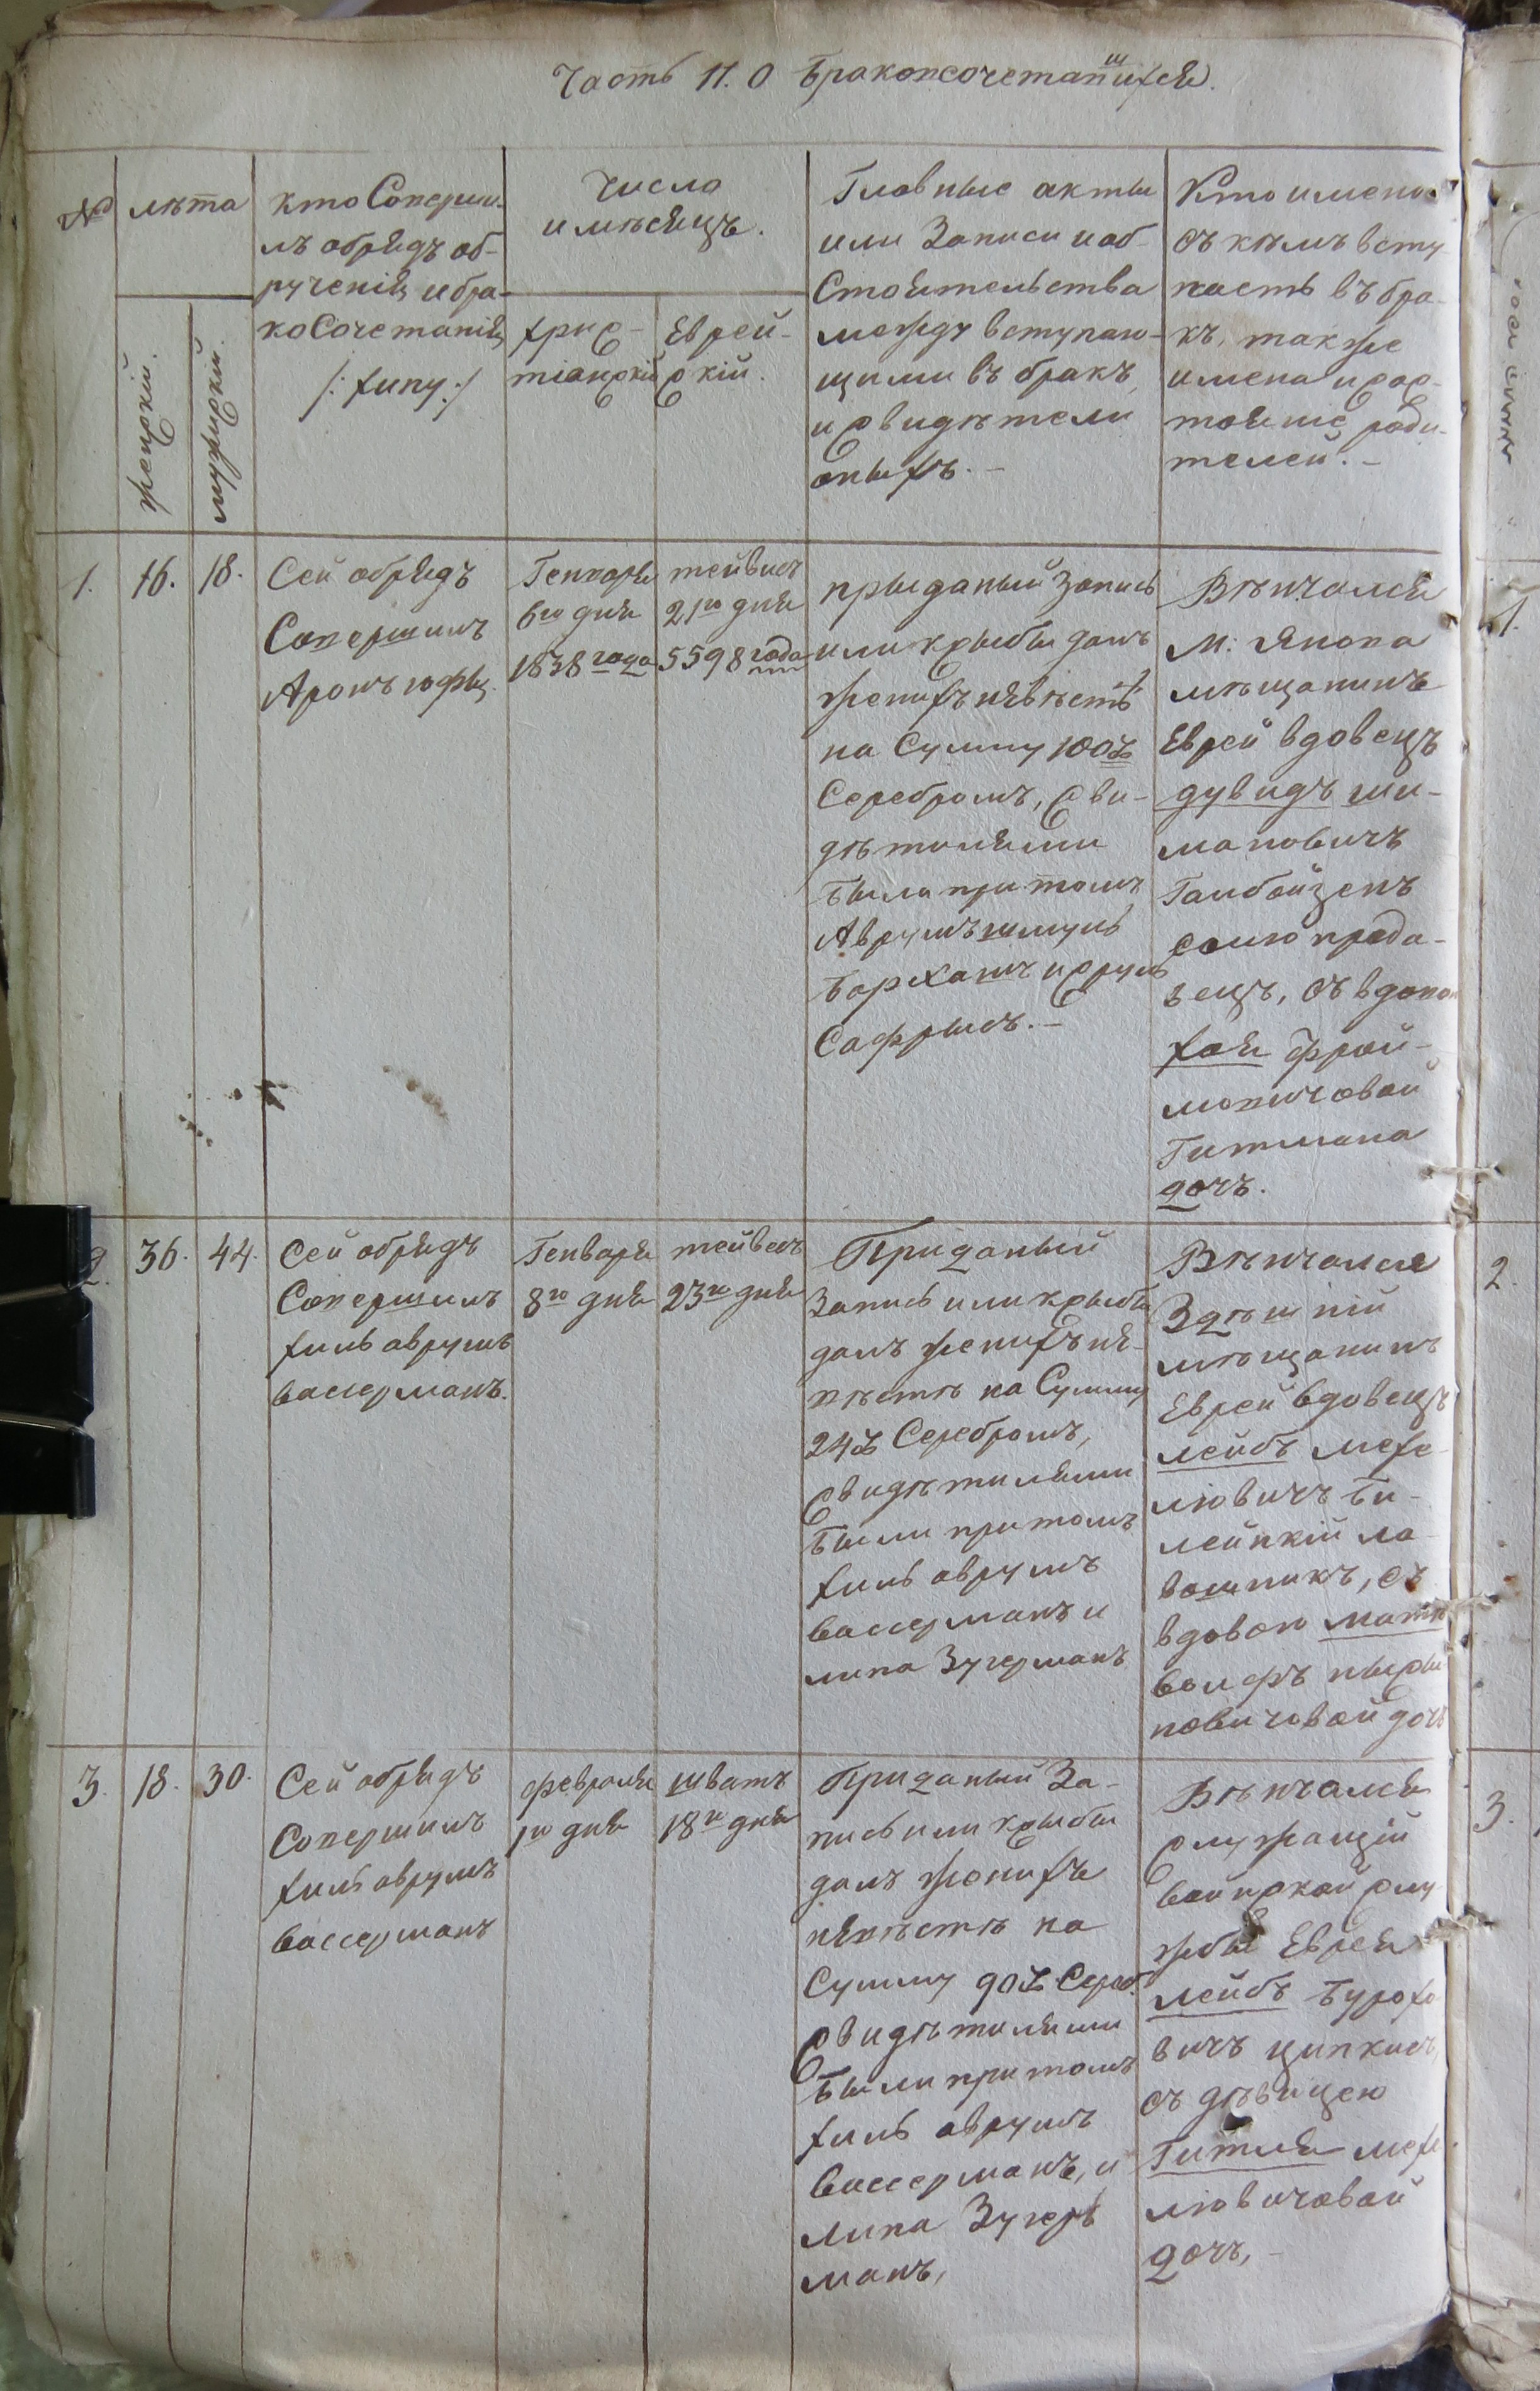 Часть II. О бракосочетавшихся.
№
лѣта
женский.
мужеский.
кто Соверши-
лъ обрядъ об-
рученія и бра-
коСочетанія
/: хупу :/
Число
и мѣсяцъ.
хрис-
тіанский
Еврей-
скій.
Главные акты
или Записи и об-
Стоятельства
между вступаю-
щими въ бракъ
и свидѣтели
оныхъ. —
Кто имено
съ кѣмъ всту
паетъ въ бра-
къ, также
имена и сос-
тояніе роди-
телей. —
1.
16.
18.
Сей обрядъ
Совершилъ
Аронъ юфц
Генваря
6го дня
1838 года
тейвисъ
21го дня
5598 года
прыданый Запись
или крыбы далъ
женихъ нявѣстѣ
на Сумму 100
Серебромъ, сви-
дѣтилями
были при томъ
Аврумъ шмуль
Борхашъ и сруль
Сафрысъ. —
Вѣнчался
м: Янова
мѣщанинъ
Еврей вдовецъ
дувидъ ши-
мановичъ
Гамбойзенъ
солю прода-
вецъ, съ вдово
хоя фрой-
моничовой
Гитмана
дочъ.
2.
36.
44.
Сей обрядъ
Совершилъ
хиль аврумъ
вассерманъ.
Генваря
8го дня
тейвесъ
23го дня
Приданый
Запись или крыбы
далъ женихъ не-
вѣстѣ на Сумму
24 Серебромъ,
Свидѣтилями
были при томъ
хиль аврумъ
вассерманъ и
липа Зугерманъ
Вѣнчался
Здѣшній
мѣщанинъ
Еврей вдовецъ
лейбъ мехе-
лювичъ Би-
лейнкій ла-
вошникъ, съ
вдовою
волфъ
новичовой дочъ
3.
18.
30.
Сей обрядъ
Совершилъ
хиль аврумъ
вассерманъ
февраля
1го дня
шватъ
18го дня
Приданый За-
пись или крыбы
далъ женихъ
нявѣстѣ на
Сумму 90 Сереб.
Свидѣтилями
были при томъ
хиль аврумъ
вассерманъ, и
липа Зугерь
манъ,
Вѣнчался
служащій
воинской слу
жбы Еврея
лейбъ Бурохо
вичъ ципкисъ,
съ дѣвицею
Гитля мехе
лювичовой
дочъ, —
1.
2.
3.